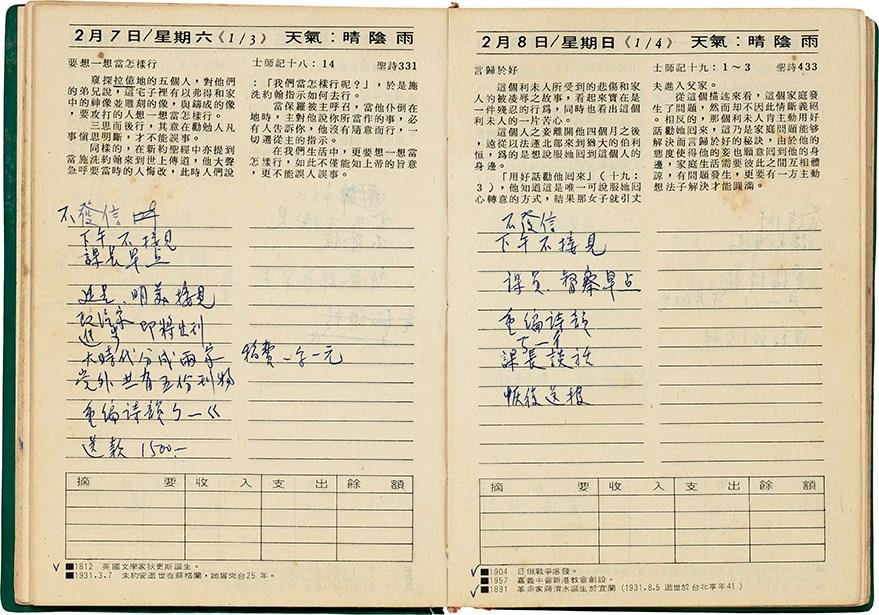 2月7日/星期六《1/3》 天氣:晴陰雨
要想一想當怎樣行 士師記十八:14 聖詩331
窺探拉億地的五個人,對他們
的弟兄說,這宅子裡有以弗得和家
中的神像並雕刻的像,與鑄成的像
,要攻打的人想一想當怎樣行。
三思而後行,其意在勸勉人凡
事愼思明斷,才不能誤事。
同樣的,在新約聖經中亦提到
當施洗約翰來到世上傳道,他大聲
急呼要當時的人悔改,此時人們說
:「我們當怎樣行呢?」,於是施
洗約翰指示如何去行。
當保羅被主呼召,當他仆倒在
地時,主對他說你所當作的事,必
有人告訴你,他沒有隨意而行,一
切還從主的指示。
在我們生活中,更要想一想當
怎樣行,如此不僅能知上帝的旨意
,更不能誤人誤事。
不發信
下午不接見
課長早点
進是、明義接見
政治家 即將出刊
進步
大時代分成兩家 稿費一字一元
党外共有五份刊物
重編詩韻ㄅ一ㄍ
送款 1500.-
摘要 收入 支出 餘額
✓■1812 英國文學家狄更斯誕生。
■1931.3.7 朱約安逝世在蘇格蘭,她曾來台25年。
2月8日/星期日《1/4》 天氣:晴陰雨
言歸於好 士師記十九:1~3 聖詩433
這個利未人所受到的悲傷和家
人的被凌辱之故事,看起來實在是
一件殘忍的行為,同時也看出這個
利未人的一片苦心。
這個人之妾離開他四個月之後
,遠從以法蓮北部來到猶大的伯利
恒,為的是想說服她回到這個人的
身邊。
「用好話勸他回來」(十九:
3),他知道這是唯一可說服她回
心轉意的方式,結果那女子就引丈
夫進入父家。
從這個描述來看,這個家庭發
生了問題,然而却不因此情斷義絕
。相反的,那個利未人肯主動用好
話勸她回來,這乃是家庭問題能够
解決而言歸於好的秘訣,由於他的
態度使得他的妾也願意回到他的身
邊,家庭生活需要彼此之間互相體
諒,有問題發生,更要有一方主動
想法子解決才能圓滿。
不發信
下午不接見
課員、督察早点
重編詩韻
ㄘ一ㄗ
課長談話
恢復送报
摘要 收入 支出 餘額
✓■1904 日俄戰爭爆發。
■1957 嘉義中會新港教會創設。
✓■1891 革命家蔣渭水誕生於宜蘭(1931.8.5 逝世於台北享年41)